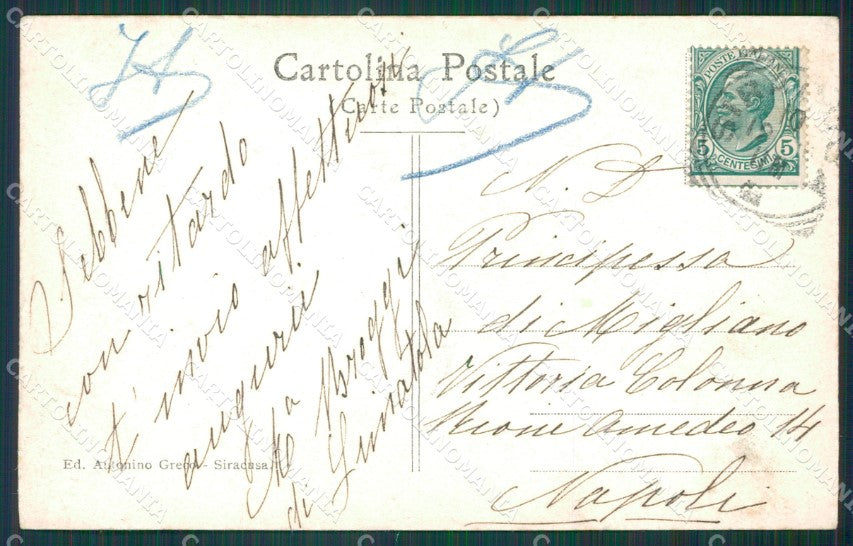 Cartolina Postale
(Carte Postale)
POSTE ITALIANE
5 5
CENTESIMI
Sebbene
con ritardo
t'invio affettuosi
augurii
Ma Broggi
di
N. D
Principessa
di Migliano
Vittoria Colonna
Rione Amedeo 14
Napoli
Ed. Antonino Greco - Siracusa.
CARTOLINOMANIA